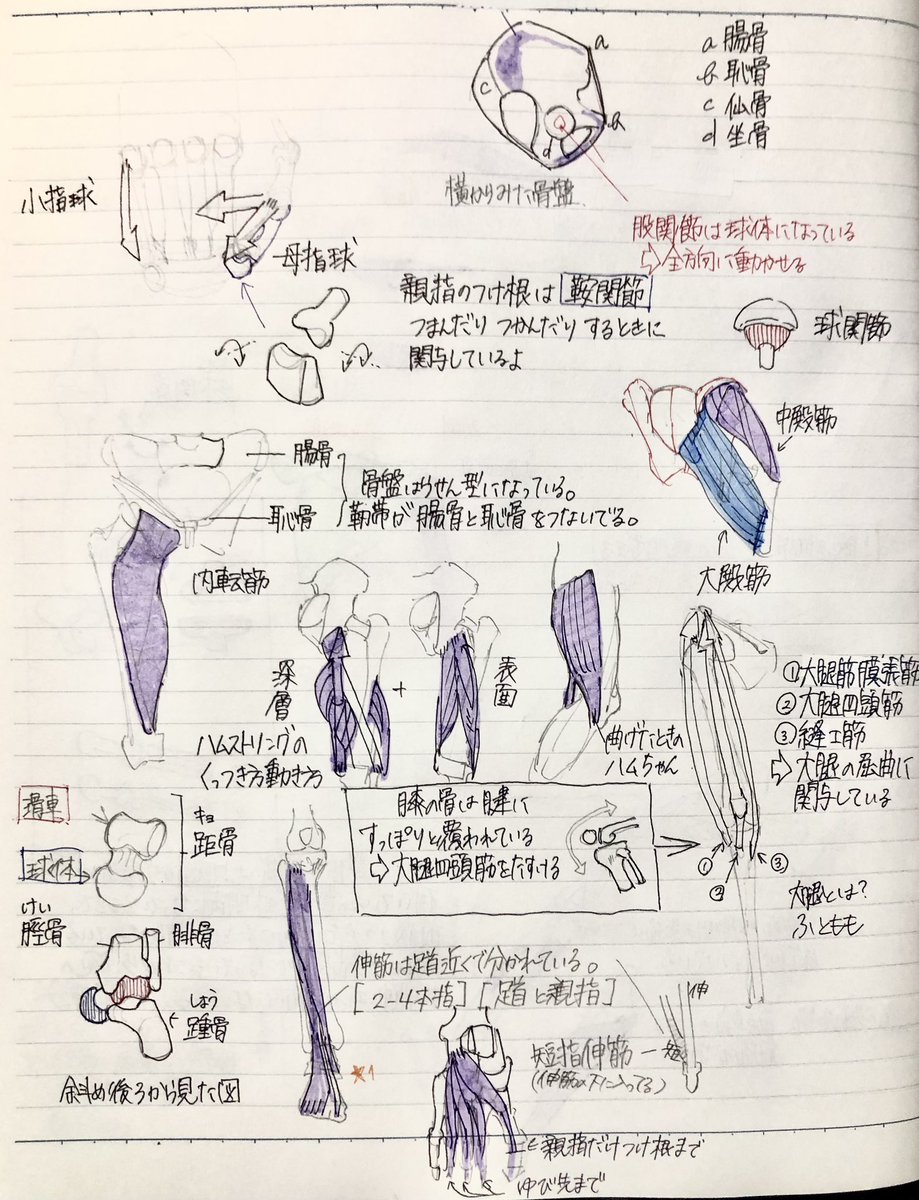 a 腸骨
b 恥骨
c 仙骨
d 坐骨
a
b
c
d
横からみた骨盤
股関節は球体になっている
⇨全方向に動かせる
小指球
母指球
親指のつけ根は 鞍関節
つまんだり つかんだり するときに
関与しているよ
球関節
中殿筋
大殿筋
腸骨
恥骨
骨盤はらせん型になっている。
靭帯が腸骨と恥骨をつないでる。
内転筋
深層
+
表面
ハムストリングの
くっつき方動き方
曲げたときの
ハムちゃん
①大腿筋膜張筋
②大腿四頭筋
③縫工筋
⇨大腿の屈曲に
関与している
① ② ③
大腿とは?
ふともも
膝の骨は腱に
すっぽりと覆われている
⇨大腿四頭筋をたすける
滑車
球体
キョ
距骨
けい
脛骨
腓骨
しょう
踵骨
斜め後ろから見た図
伸筋は足首近くで分かれている。
[2-4本指] [足首と親指]
★1
短指伸筋ー短
(伸筋の下に入ってる)
伸
親指だけつけ根まで
ゆび先まで